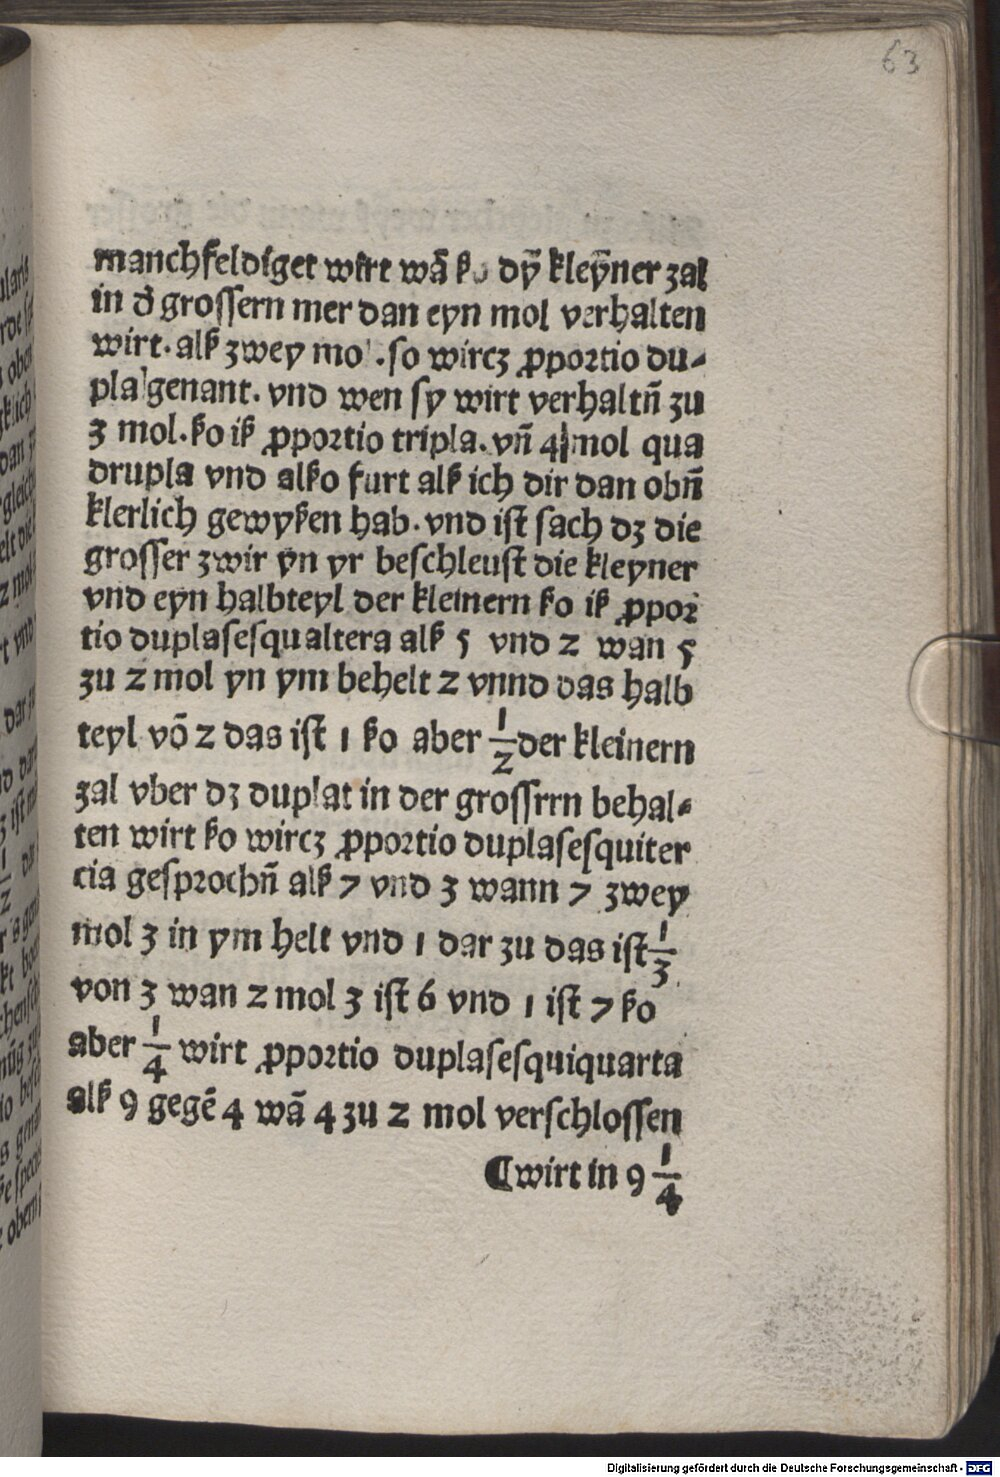 63
manchfeldiget wirt wā ßo dȳ kleȳner zal
in d̄ grossern mer dan eyn mol verhalten
wirt. alß zwey mol. so wircz ꝓportio du-
pla genant. vnd wen sy wirt verhaltn̄ zu
3 mol. ßo iß ꝓportio tripla. vn̄ 4 mol qua
drupla vnd alßo furt alß ich dir dan obn̄
klerlich gewyßen hab. vnd ist sach dz die
grosser zwir yn yr beschleust die kleyner
vnd eyn halbteyl der kleinern ßo iß ꝓpor
tio duplasesqualtera alß 5 vnd 2 wan 5
zu 2 mol yn ym behelt 2 vnnd das halb
teyl vō 2 das ist 1 ßo aber 1/2 der kleinern
zal vber dz duplat in der grossrrn behal-
ten wirt ßo wircz ꝓportio duplasesquiter
cia gesprochn̄ alß 7 vnd 3 wann 7 zwey
mol 3 in ym helt vnd 1 dar zu das ist 1/3
von 3 wan 2 mol 3 ist 6 vnd 1 ist 7 ßo
aber 1/4 wirt ꝓportio duplasesquiquarta
alß 9 gegē 4 wā 4 zu 2 mol verschlossen
⸿ wirt in 9 1/4
Digitalisierung gefördert durch die Deutsche Forschungsgemeinschaft - DFG